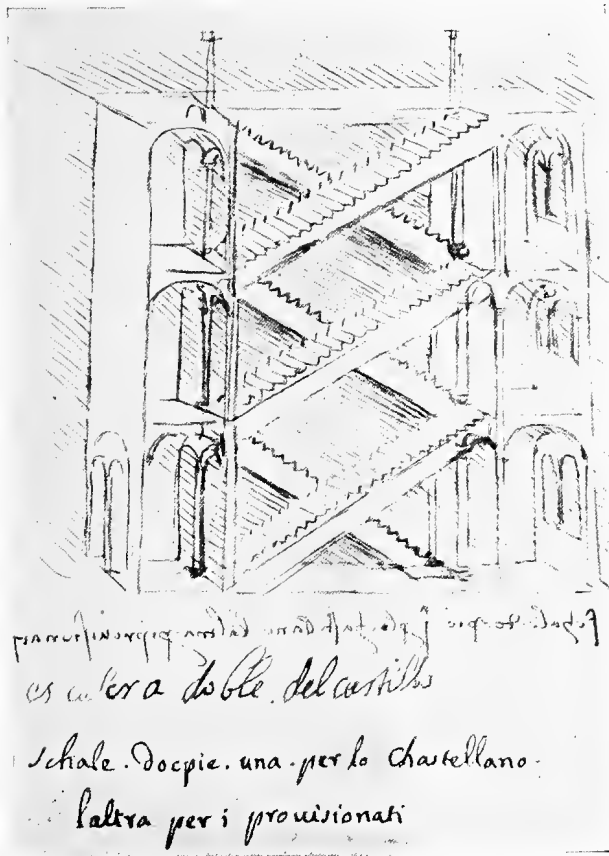 escalera doble del castillo
schale . docpie . una . per lo chastellano .
laltra per i provisionati